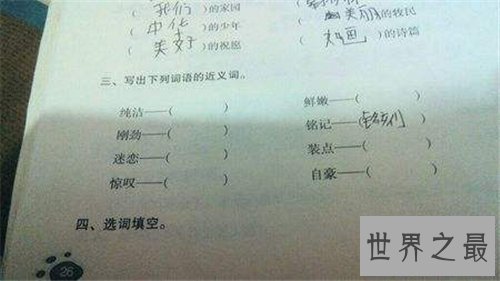 ( 我们 )的家园
( 中华 )的少年 ( 美丽 )的牧民
( 美好 )的祝愿 ( 如画 )的诗篇
三、写出下列词语的近义词。
纯洁——( ) 鲜嫩——( )
刚劲——( ) 铭记——( )
迷恋——( ) 装点——( )
惊叹——( ) 自豪——( )
四、选词填空。
26
世界之最